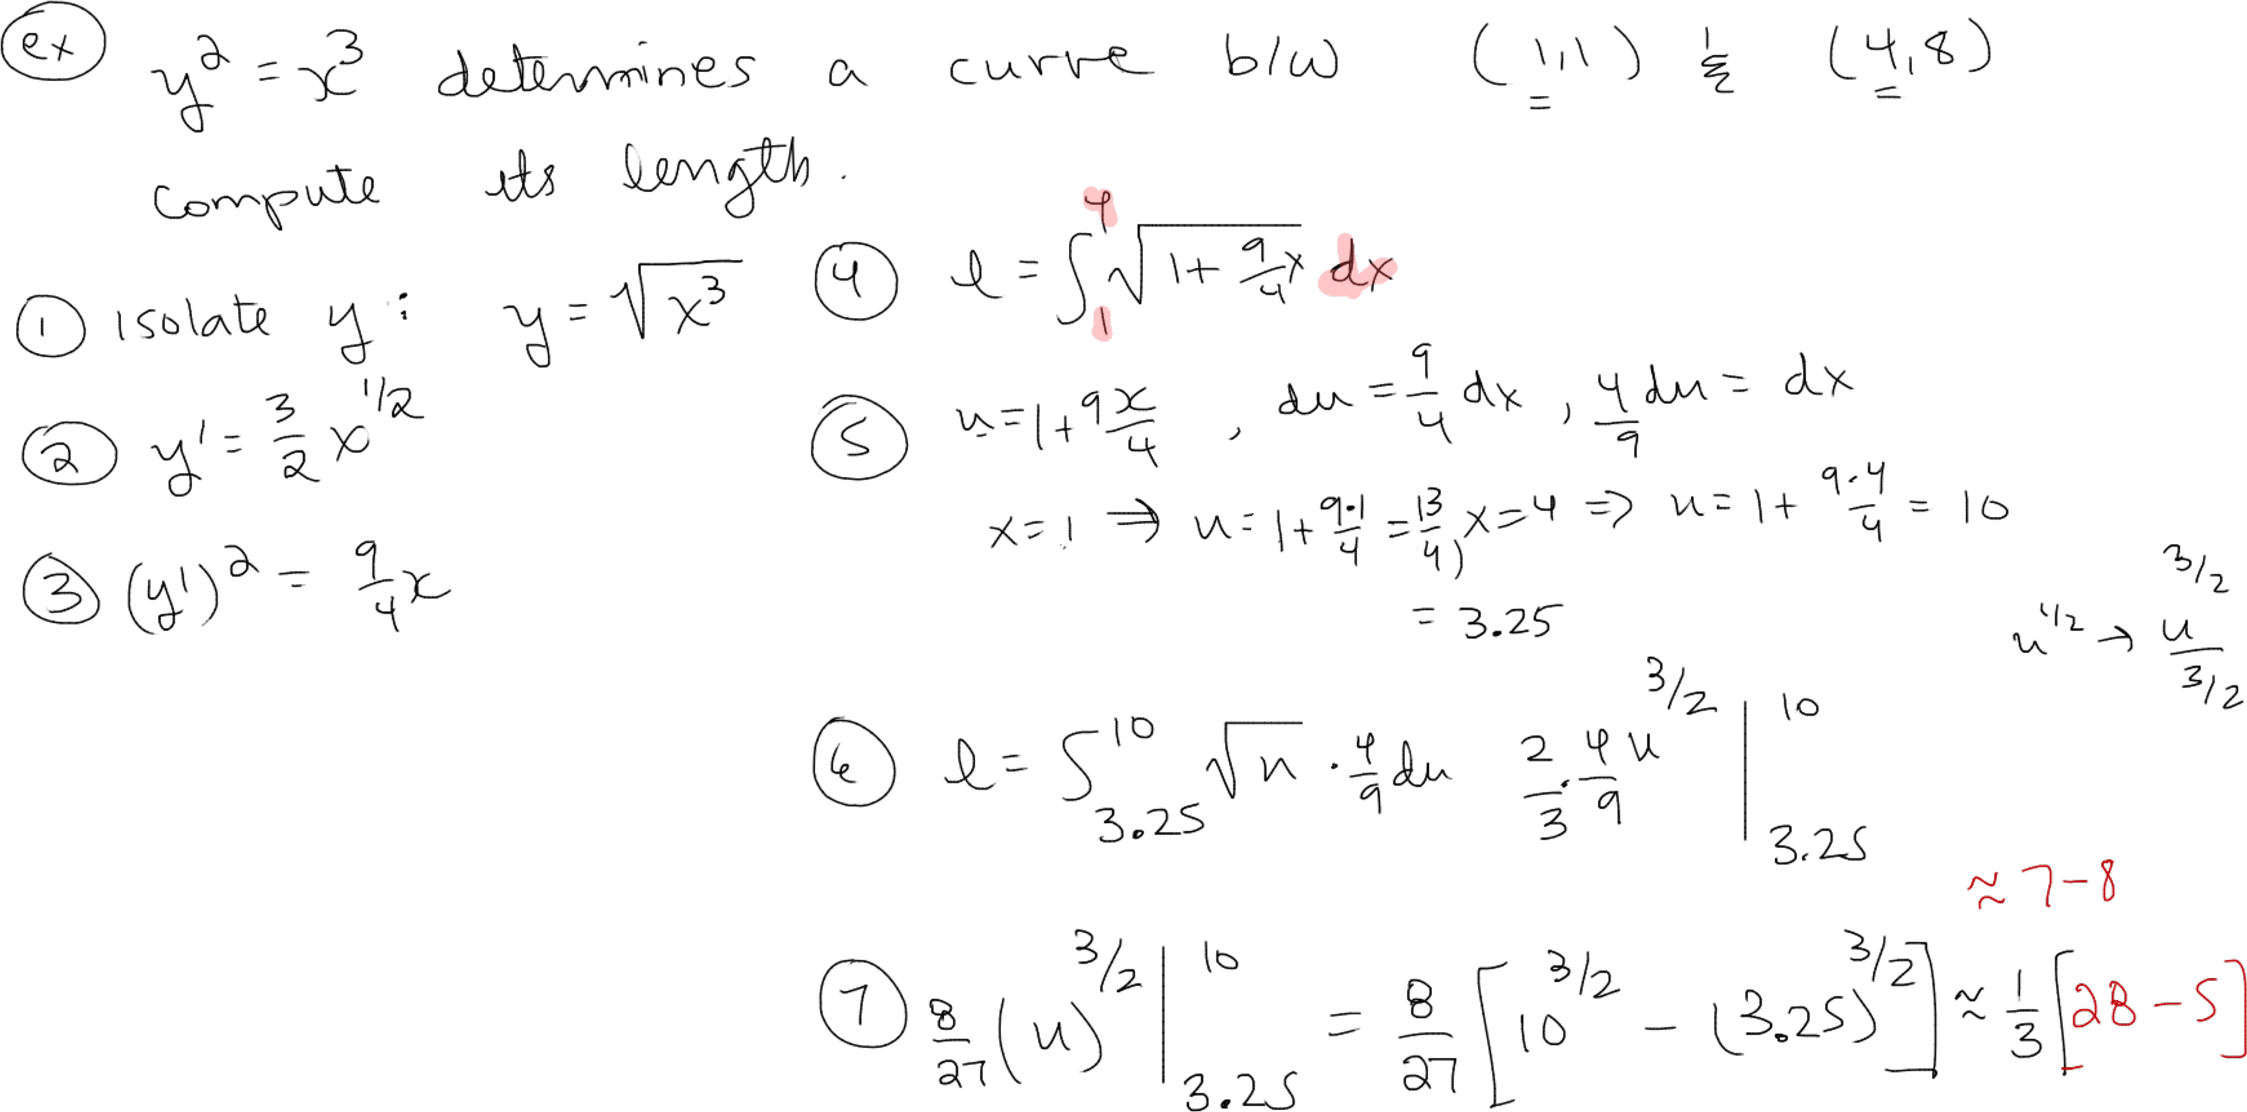 ex y² = x³ determines a curve b/w (1,1) & (4,8)
compute its length.
① isolate y: y = √x³
② y' = 3/2 x^1/2
③ (y')² = 9/4 x
④ l = ∫₁⁴ √(1 + 9/4 x) dx
⑤ u = 1 + 9x/4 , du = 9/4 dx , 4/9 du = dx
x = 1 ⇒ u = 1 + 9·1/4 = 13/4 , x = 4 ⇒ u = 1 + 9·4/4 = 10
= 3.25
u^1/2 → u^3/2 / 3/2
⑥ l = ∫_3.25^10 √u · 4/9 du 2/3 · 4/9 u^3/2 |_3.25^10
≈ 7-8
⑦ 8/27 (u)^3/2 |_3.25^10 = 8/27 [10^3/2 - (3.25)^3/2] ≈ 1/3 [28 - 5]